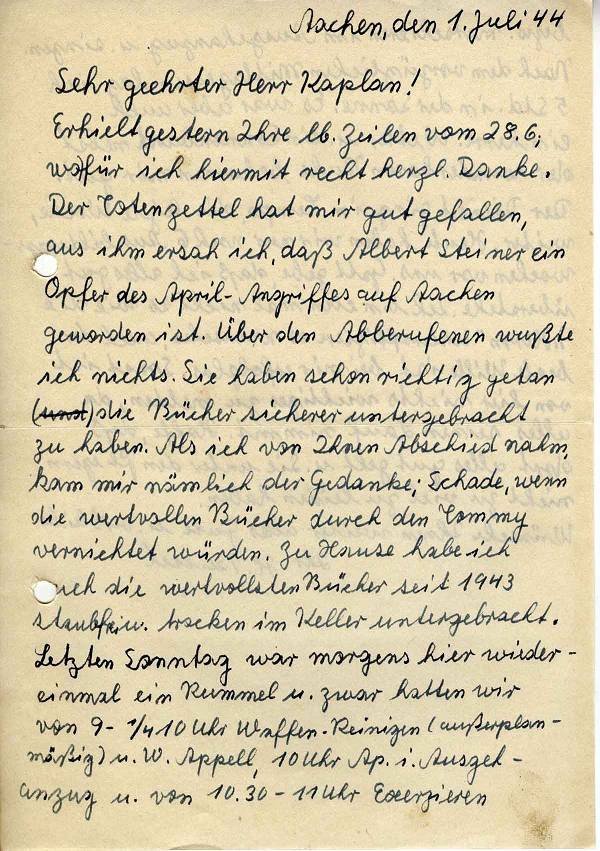 Aachen, den 1. Juli 44
Sehr geehrter Herr Kaplan!
Erhielt gestern Ihre lb. Zeilen vom 28.6;
wofür ich hiermit recht herzl. Danke.
Der Totenzettel hat mir gut gefallen,
aus ihm ersah ich, daß Albert Steiner ein
Opfer des April-Angriffes auf Aachen
geworden ist. Über den Abberufenen wußte
ich nichts. Sie haben schon richtig getan
(und) die Bücher sicherer untergebracht
zu haben. Als ich von Ihnen Abschied nahm,
kam mir nämlich der Gedanke; Schade, wenn
die wertvollen Bücher durch den Tommy
vernichtet würden. Zu Hause habe ich
auch die wertvollsten Bücher seit 1943
staubfrei u. trocken im Keller untergebracht.
Letzten Sonntag war morgens hier wieder-
einmal ein Rummel u. zwar hatten wir
von 9 - 1/4 10 Uhr Waffen-Reinigen (außerplan-
mäßig) u. W. Appell, 10 Uhr Ap. i. Ausgeh-
anzug u. von 10.30 - 11 Uhr Exerzieren